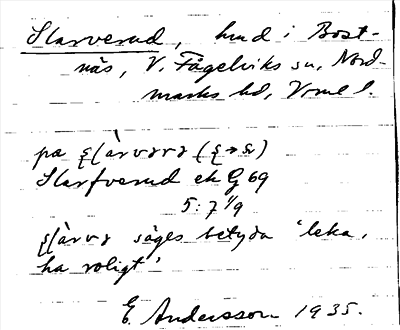 Slarverud, hmd i Bost-
näs, V. Fågelviks sn, Nord-
marks hd, Vrml l.
pa
Slarfverud ek G 69
5:7 1/9
säges betyda 'leka,
ha roligt'
E. Andersson 1935.